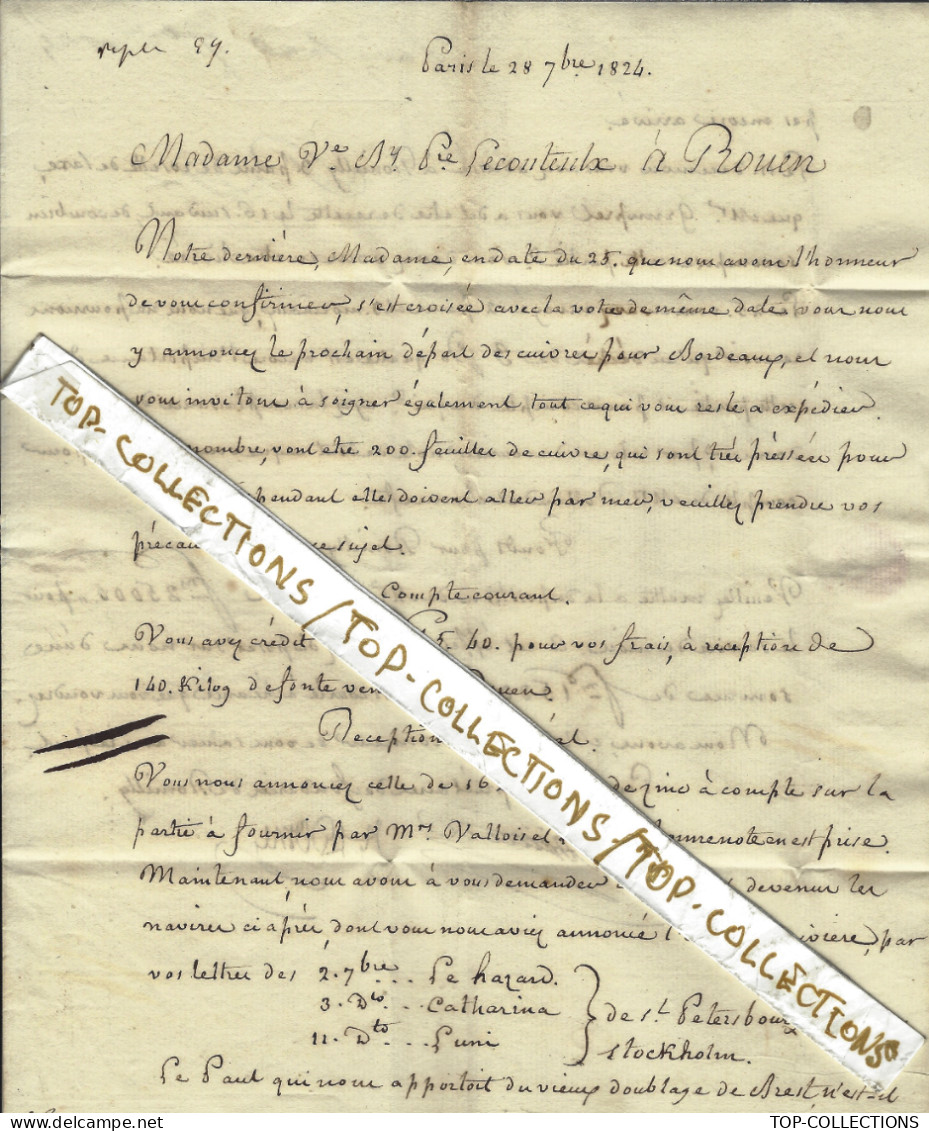 Paris le 28 7bre 1824.
Madame Ve. Py. Pre Lecouteulx à Rouen
Notre dernière, Madame, en date du 25. que nous avons l'honneur
de vous confirmer, s'est croisée avec la votre de même date vous nous
y annoncez le prochain départ des cuivres pour Bordeaux, et nous
vous invitons à soigner également tout ce qui vous reste a expédier.
nombre, vont etre 200. feuilles de cuivre, qui sont très pressées pour
pendant elles doivent aller par mer, veuillez prendre vos
précau sujet.
Compte courant.
Vous avez crédit 5. 40. pour vos frais, à réception de
140. Kilog de fonte ven
Reception
Vous nous annoncez celle de 16 de zinc à compte sur la
partie à fournir par Mrs. Vallois note en est prise.
Maintenant, nous avons à vous demander devenus les
navires ci après, dont vous nous aviez annoncé l' rivière, par
vos lettres des 2. 7bre ... Le hazard.
3. Dto .. Catharina de St. Petersbourg
11. Dto ... Luni Stockholm.
Le Paul qui nous apportoit du vieux doublage de Brest, n'est-il
TOP-COLLECTIONS / TOP-COLLECTIONS / TOP-COLLECTIONS
TOP-COLLECTIONS